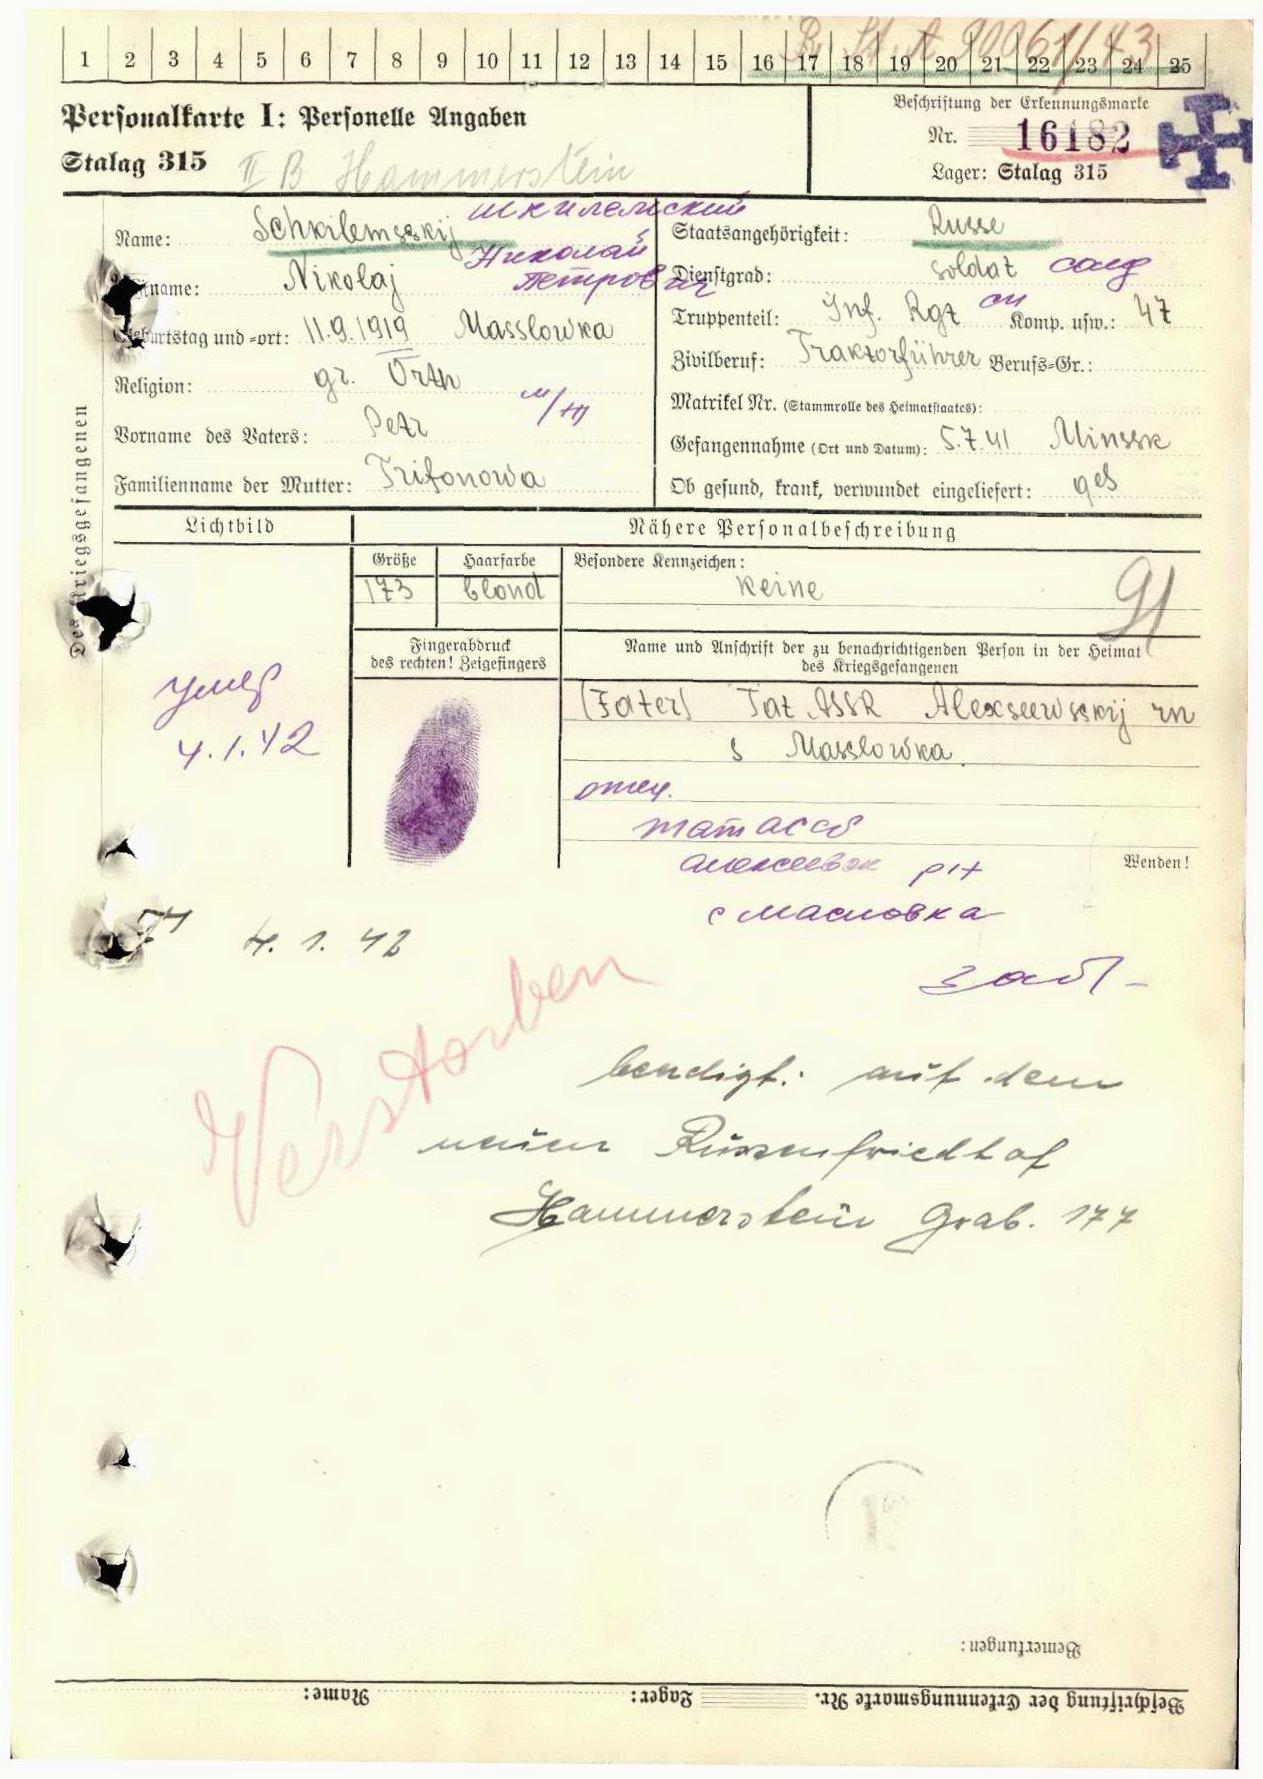 R. St. A 90061/43
1 2 3 4 5 6 7 8 9 10 11 12 13 14 15 16 17 18 19 20 21 22 23 24 25
Personalkarte I: Personelle Angaben
Stalag 315 II B Hammerstein
Beschriftung der Erkennungsmarke
Nr. 16182
Lager: Stalag 315
Des Kriegsgefangenen
Name: Schkilemsskij Шкилемский
Vorname: Nikolaj Николай
Петрович
Geburtstag und -ort: 11.9.1919 Masslowka
Religion: gr. Orth
Vorname des Vaters: Petr
Familienname der Mutter: Trifonowa
Staatsangehörigkeit: Russe
Dienstgrad: Soldat солд
Truppenteil: Inf. Rgt сп Komp. usw.: 47
Zivilberuf: Traktorführer Berufs-Gr.:
Matrikel Nr. (Stammrolle des Heimatstaates):
Gefangennahme (Ort und Datum): 5.7.41 Minssk
Ob gesund, krank, verwundet eingeliefert: ges
Lichtbild
Nähere Personalbeschreibung
Größe Haarfarbe Besondere Kennzeichen:
173 blond keine
91
Fingerabdruck
des rechten! Zeigefingers
Name und Anschrift der zu benachrichtigenden Person in der Heimat
des Kriegsgefangenen
(Fater) Tat ASSR Alexseewsskij rn
s Masslowka
умер
4.1.42
отец.
тат АССР
Алексеевск р-н
с Масловка
Wenden!
4. 1. 42
Verstorben
beerdigt: auf dem
neuen Russenfriedhof
Hammerstein Grab. 177
Bemerkungen:
Beschriftung der Erkennungsmarke Nr. Lager: Name: